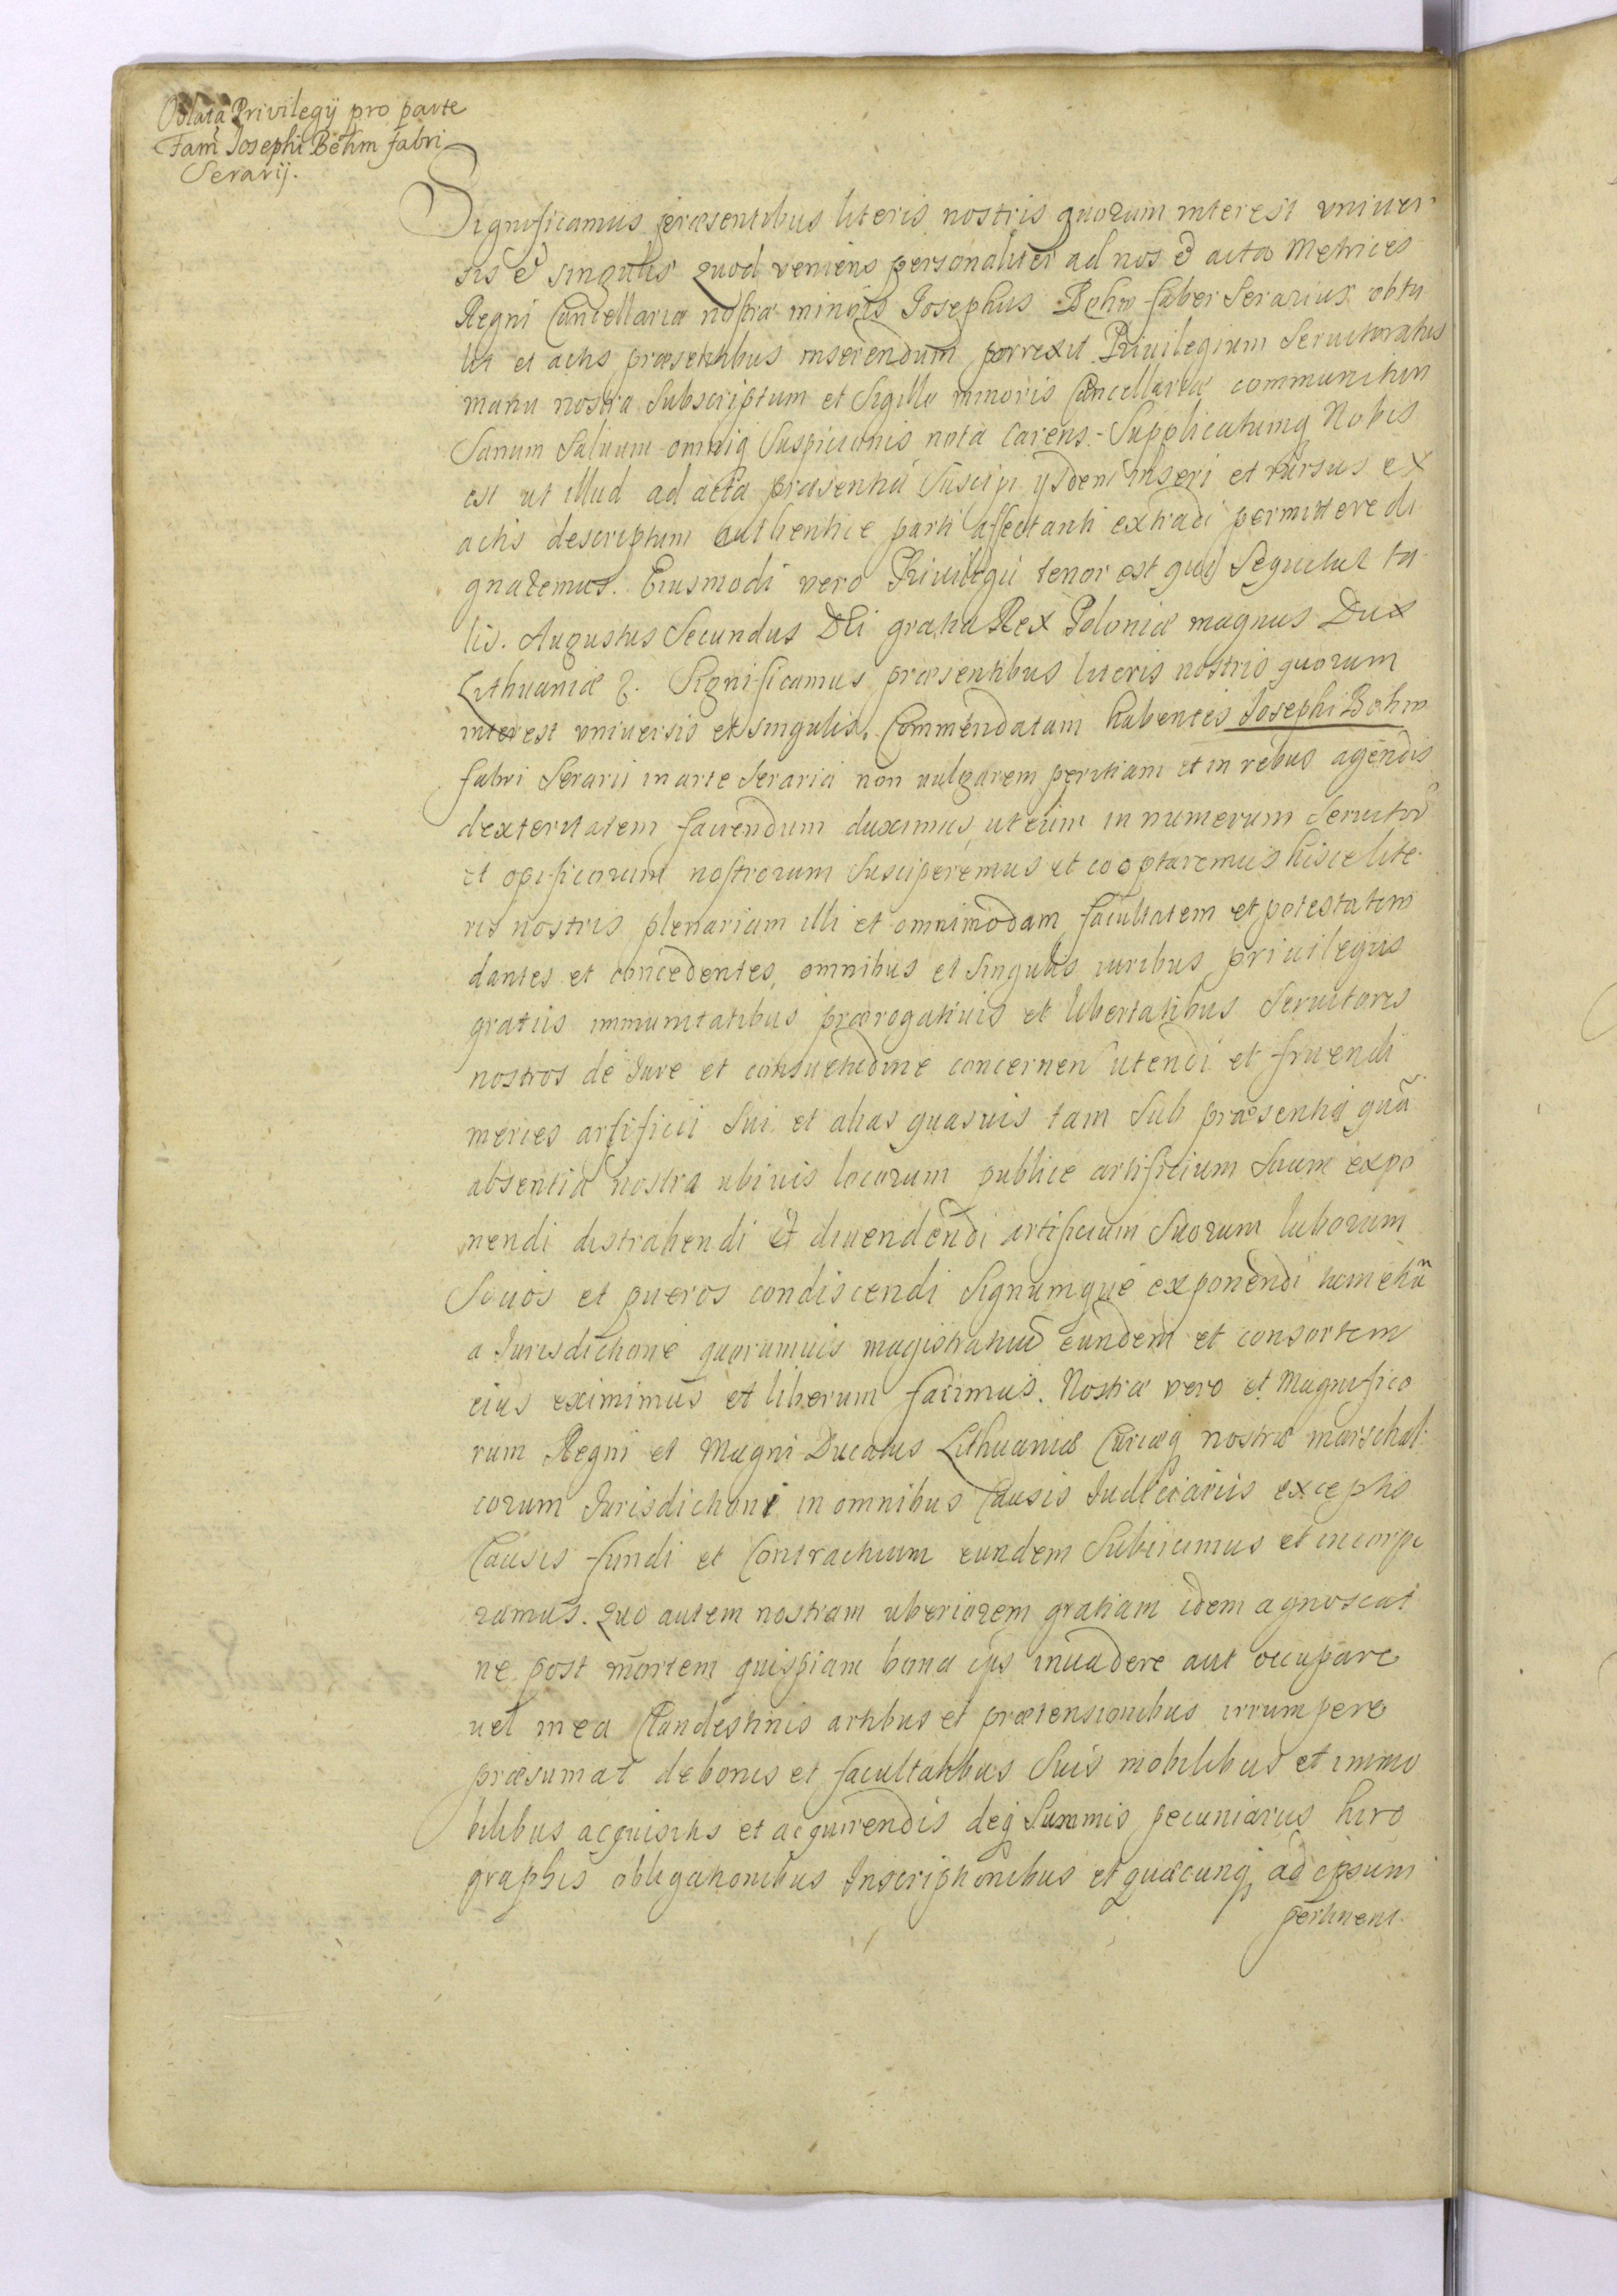 Oblata Privilegij pro parte
Fam̃ Josephi Böhm fabri
Serarij.
Significamus præsentibus literis nostris quorum interest vniuer
sis et singulis Quod veniens personaliter ad nos et acta Metrices
Regni Cancellariæ nostræ minoris Josephus Behm faber Serarius obtu
lit et actis præsentibus inserendum porrexit Priuilegium Seruitoratus
manu nostra Subscriptum et Sigillo minoris Cancellariæ communitum
Sanum Saluum omniq Suspicionis nota carens. Supplicatumq Nobis
est ut illud ad acta præsentia Suscipi ijsdem inseri et rursus ex
actis descriptum authentice parti affectanti extradi permittere di
gnaremus. Eiusmodi vero Priuilegii tenor est qui Sequitur ta
lis. Augustus Secundus DEi gratia Rex Poloniæ magnus Dux
Lithuaniæ &. Significamus præsentibus literis nostris quorum
interest vniuersis et singulis. Commendatam habentes Josephi Bohm
fabri Serarii in arte Seraria non uulgarem peritiam et in rebus agendis
dexteritatem fauendum duximus, ut eum in numerum Seruitor̃
et opificorum nostrorum Susciperemus et cooptaremus hisce lite
ris nostris plenariam illi et omnimodam facultatem et potestatem
dantes et concedentes, omnibus et Singulis iuribus priuilegiis
gratiis immunitatibus prærogatiuis et libertatibus Seruitores
nostros de Jure et consuetudine concernen utendi et fruendi
merces artificii Sui et alias quasuis tam Sub præsentia quã
absentia nostra ubiuis locorum publice artificium Suum expo
nendi distrahendi et diuendendi artificium Suorum laborum
Socios et pueros condiscendi Signumque exponendi
a Jurisdictione quorumuis magistratuũ eundem et consortem
eius eximimus et liberum facimus. Nostræ vero et Magnifico
rum Regni et Magni Ducatus Lithuaniæ Curiæq nostræ marschal
corum Jurisdictioni in omnibus Causis Judiciariis exceptis
Causis fundi et Contractuum eundem Subiicimus et incorpo
ramus. Quo autem nostram uberiorem gratiam idem agnoscat
ne post mortem quispiam bona ejus inuadere aut occupare
uel in ea Clandestinis artibus et prætensionibus irrumpere
præsumat de bonis et facultatibus Suis mobilibus et immo
bilibus acquisitis et acquirendis deq Summis pecuniariis hiro
graphis obligationibus Inscriptionibus et quæcunq ad ipsum
pertinent.